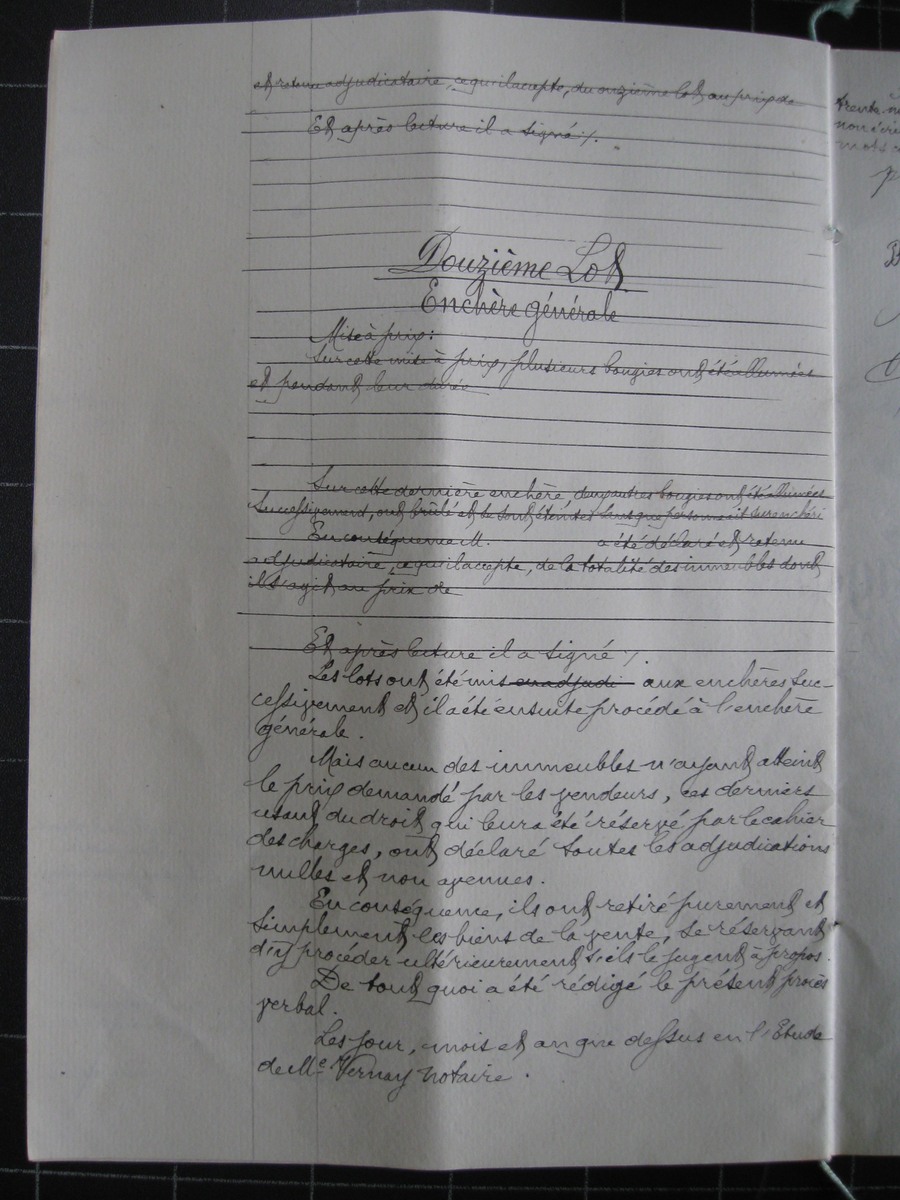 et retenu adjudicataire, ce qu'il accepte, du onzième lot au prix de
Et après lecture il a signé ./.
Douzième Lot
Enchère générale
Mise à prix :
Sur cette mise à prix, plusieurs bougies ont été allumées
et pendant leur durée
Sur cette dernière enchère, deux autres bougies ont été allumées
successivement, ont brûlé et se sont éteintes sans que personne ait surenchéri
En conséquence M. a été déclaré et retenu
adjudicataire, ce qu'il accepte, de la totalité des immeubles dont
il s'agit au prix de
Et après lecture il a signé ./.
Les lots ont été mis en adjudi aux enchères suc-
cessivement et il a été ensuite procédé à l'enchère
générale.
Mais aucun des immeubles n'ayant atteint
le prix demandé par les vendeurs, ces derniers
usant du droit qui leur a été réservé par le cahier
des charges, ont déclaré toutes les adjudications
nulles et non avenues.
En conséquence, ils ont retiré purement et
simplement les biens de la vente, se réservant
d'y procéder ultérieurement s'ils le jugent à propos.
De tout quoi a été rédigé le présent procès
verbal.
Les jour, mois et an que dessus en l'Etude
de Me Vernay notaire.
trente
mots